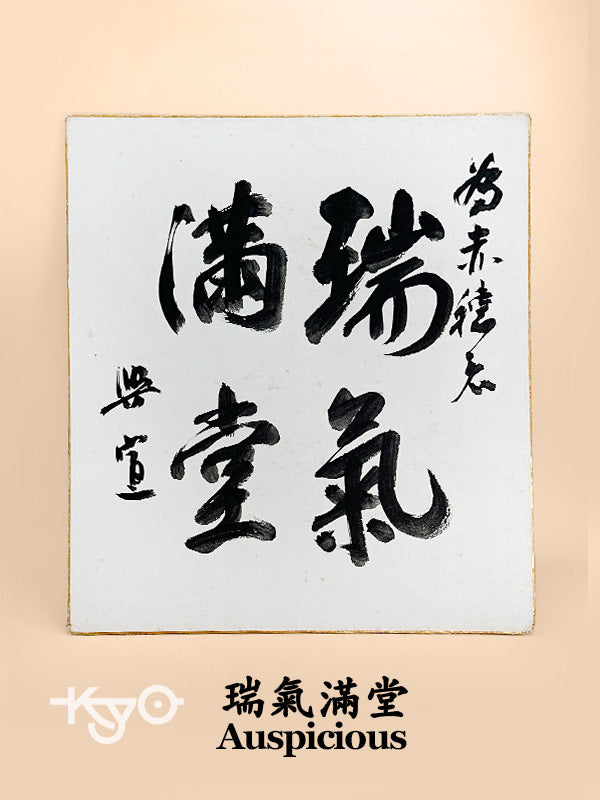 為赤君
瑞氣
滿堂
宣
KYO
瑞氣滿堂
Auspicious